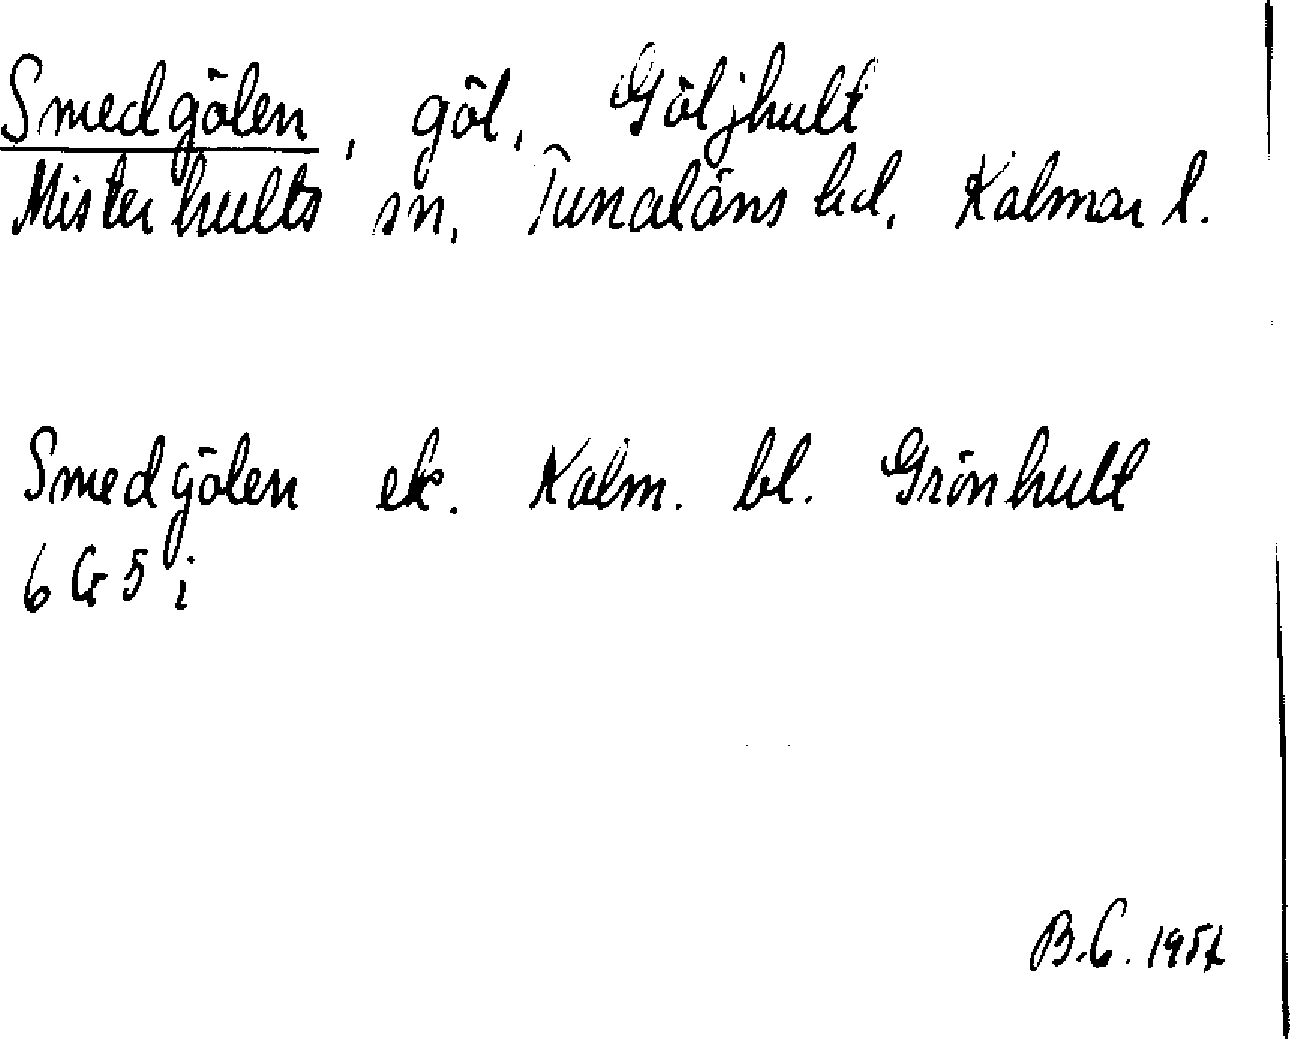 Smedgölen, göl, Göljhult
Misterhults sn, Tunaläns hd, Kalmar l.
Smedgölen ek. Kalm. bl. Grönhult
6 G 5 i
B.G.